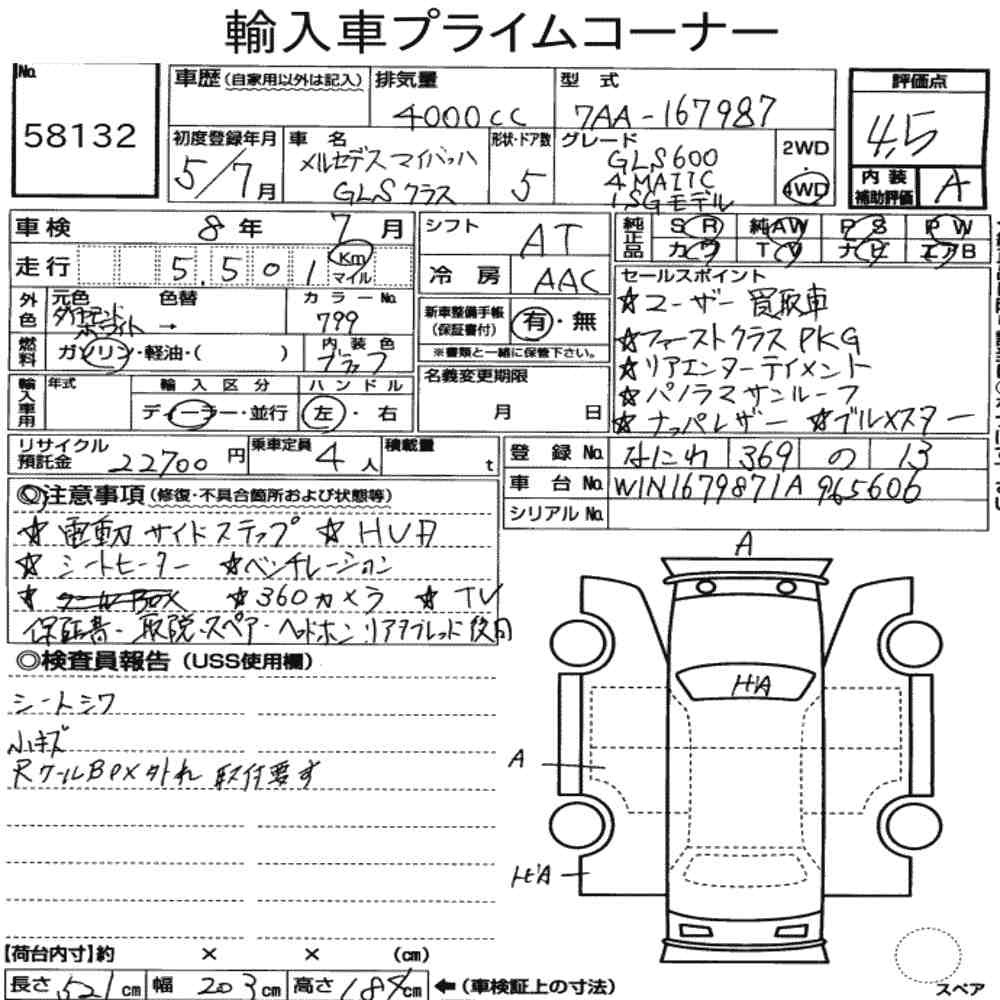 輸入車プライムコーナー
No. 58132
車歴(自家用以外は記入) 排気量 4000cc 型式 7AA-167987
評価点 4.5
初度登録年月 5/7月 車名 メルセデスマイバッハ GLSクラス 形状・ドア数 5 グレード GLS600 4MATIC ISGモデル 2WD 4WD
内装補助評価 A
車検 8年 7月 シフト AT
純正品 SR 純AW PS PW
カワ TV ナビ エアB
走行 5501 Km マイル 冷房 AAC
外色 元色 ダイヤモンドホワイト 色替 → カラーNo. 799
新車整備手帳(保証書付) 有・無
※書類と一緒に保管下さい。
燃料 ガソリン・軽油・( ) 内装色 ブラック
名義変更期限 月 日
輸入車用 年式 輸入区分 ディーラー・並行 ハンドル 左・右
セールスポイント
☆ユーザー買取車
☆ファーストクラスPKG
☆リアエンターテイメント
☆パノラマサンルーフ
☆ナッパレザー ☆ブルメスター
リサイクル預託金 22700円 乗車定員 4人 積載量 t
登録No. なにわ 369 の 13
車台No. W1N1679871A965606
シリアルNo.
◎注意事項(修復・不具合箇所および状態等)
☆電動サイドステップ ☆HUD
☆シートヒーター ☆ベンチレーション
☆クールBOX ☆360カメラ ☆TV
保証書・取説・スペア・ヘッドホン・リアタブレッド使用
◎検査員報告(USS使用欄)
シートシワ
小キズ
RクールBOX外れ 取付要す
A
ﾋA
A
ﾋA
【荷台内寸】約 × × (cm)
長さ 521cm 幅 203cm 高さ 184cm ←(車検証上の寸法)
スペア